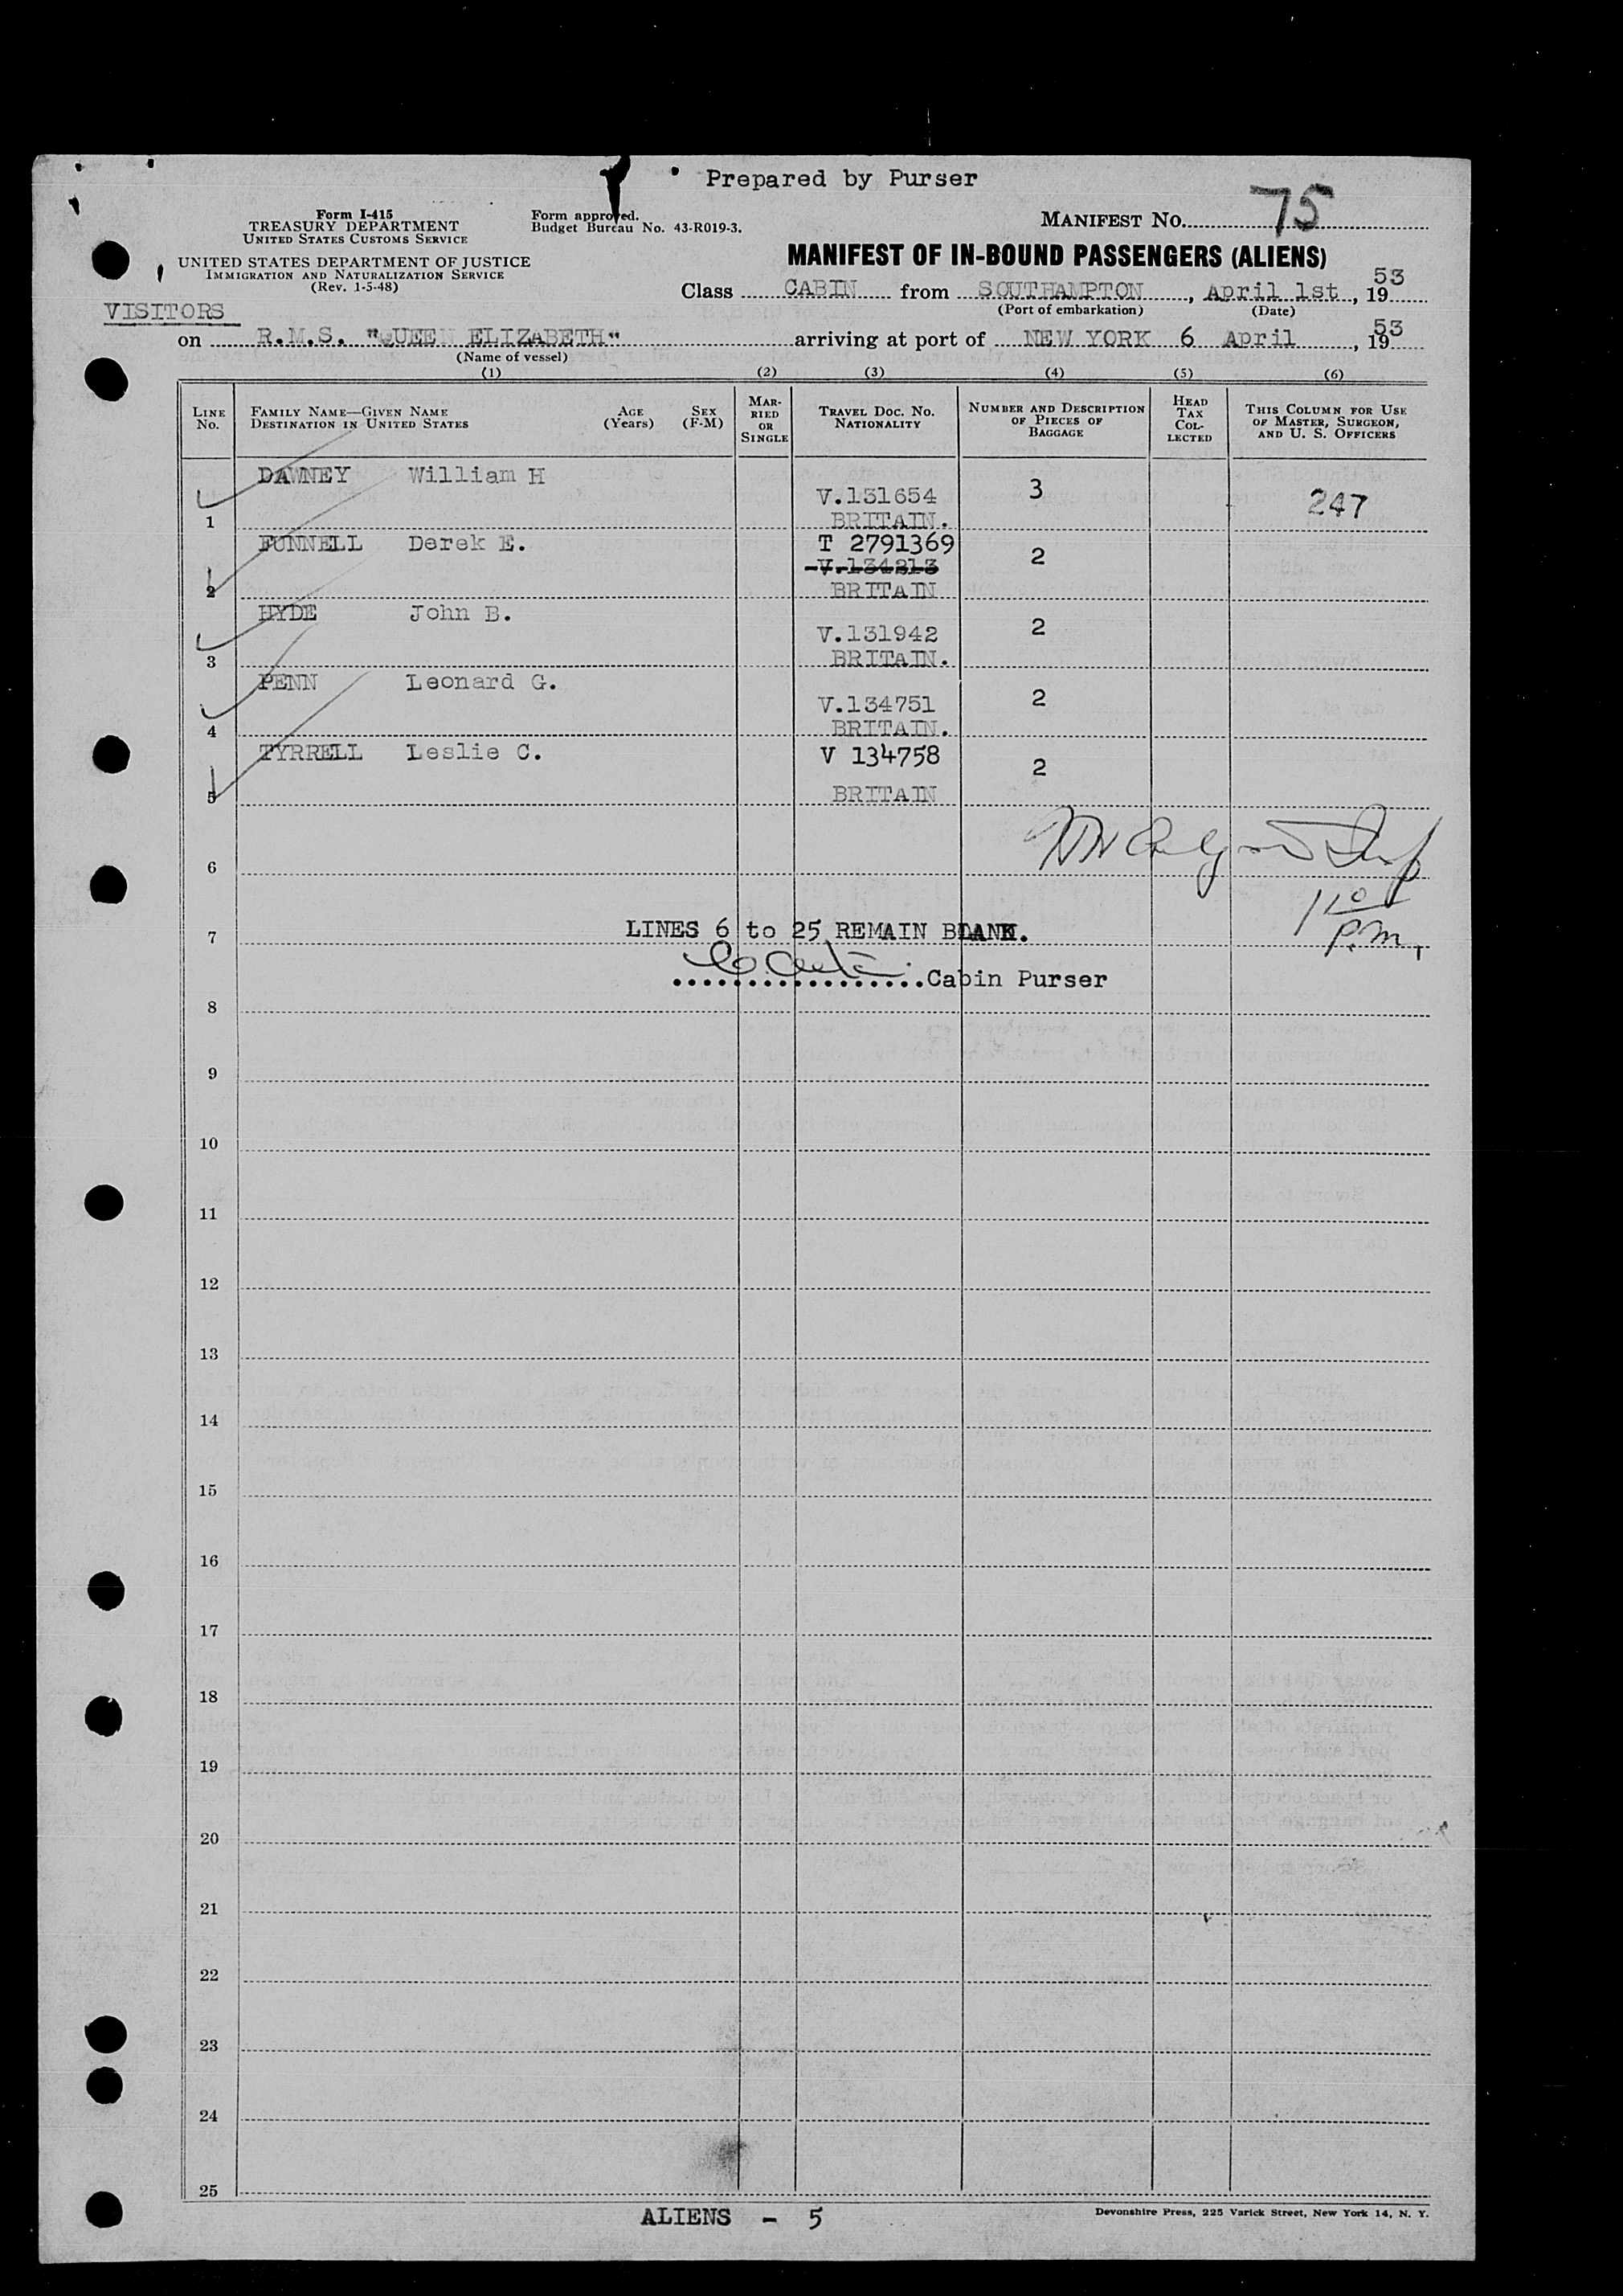 Prepared by Purser
75
Form I-415
TREASURY DEPARTMENT
UNITED STATES CUSTOMS SERVICE
Form approved.
Budget Bureau No. 43-R019-3.
MANIFEST NO.
UNITED STATES DEPARTMENT OF JUSTICE
IMMIGRATION AND NATURALIZATION SERVICE
(Rev. 1-5-48)
MANIFEST OF IN-BOUND PASSENGERS (ALIENS)
Class CABIN from SOUTHAMPTON, April 1st, 1953
(Port of embarkation) (Date)
VISITORS
on R.M.S. "QUEEN ELIZABETH" arriving at port of NEW YORK 6 April, 1953
(Name of vessel)
(1) (2) (3) (4) (5) (6)
LINE NO.
FAMILY NAME—GIVEN NAME
DESTINATION IN UNITED STATES
AGE (Years)
SEX (F-M)
MARRIED OR SINGLE
TRAVEL DOC. NO. NATIONALITY
NUMBER AND DESCRIPTION OF PIECES OF BAGGAGE
HEAD TAX COLLECTED
THIS COLUMN FOR USE OF MASTER, SURGEON, AND U. S. OFFICERS
1 DAWNEY William H V.131654 BRITAIN. 3 247
2 FUNNELL Derek E. T 2791369 V.134213 BRITAIN 2
3 HYDE John B. V.131942 BRITAIN. 2
4 PENN Leonard G. V.134751 BRITAIN. 2
5 TYRRELL Leslie C. V 134758 BRITAIN 2
6
110 P.m.
7 LINES 6 to 25 REMAIN BLANK.
Cabin Purser
8
9
10
11
12
13
14
15
16
17
18
19
20
21
22
23
24
25
ALIENS - 5
Devonshire Press, 225 Varick Street, New York 14, N. Y.